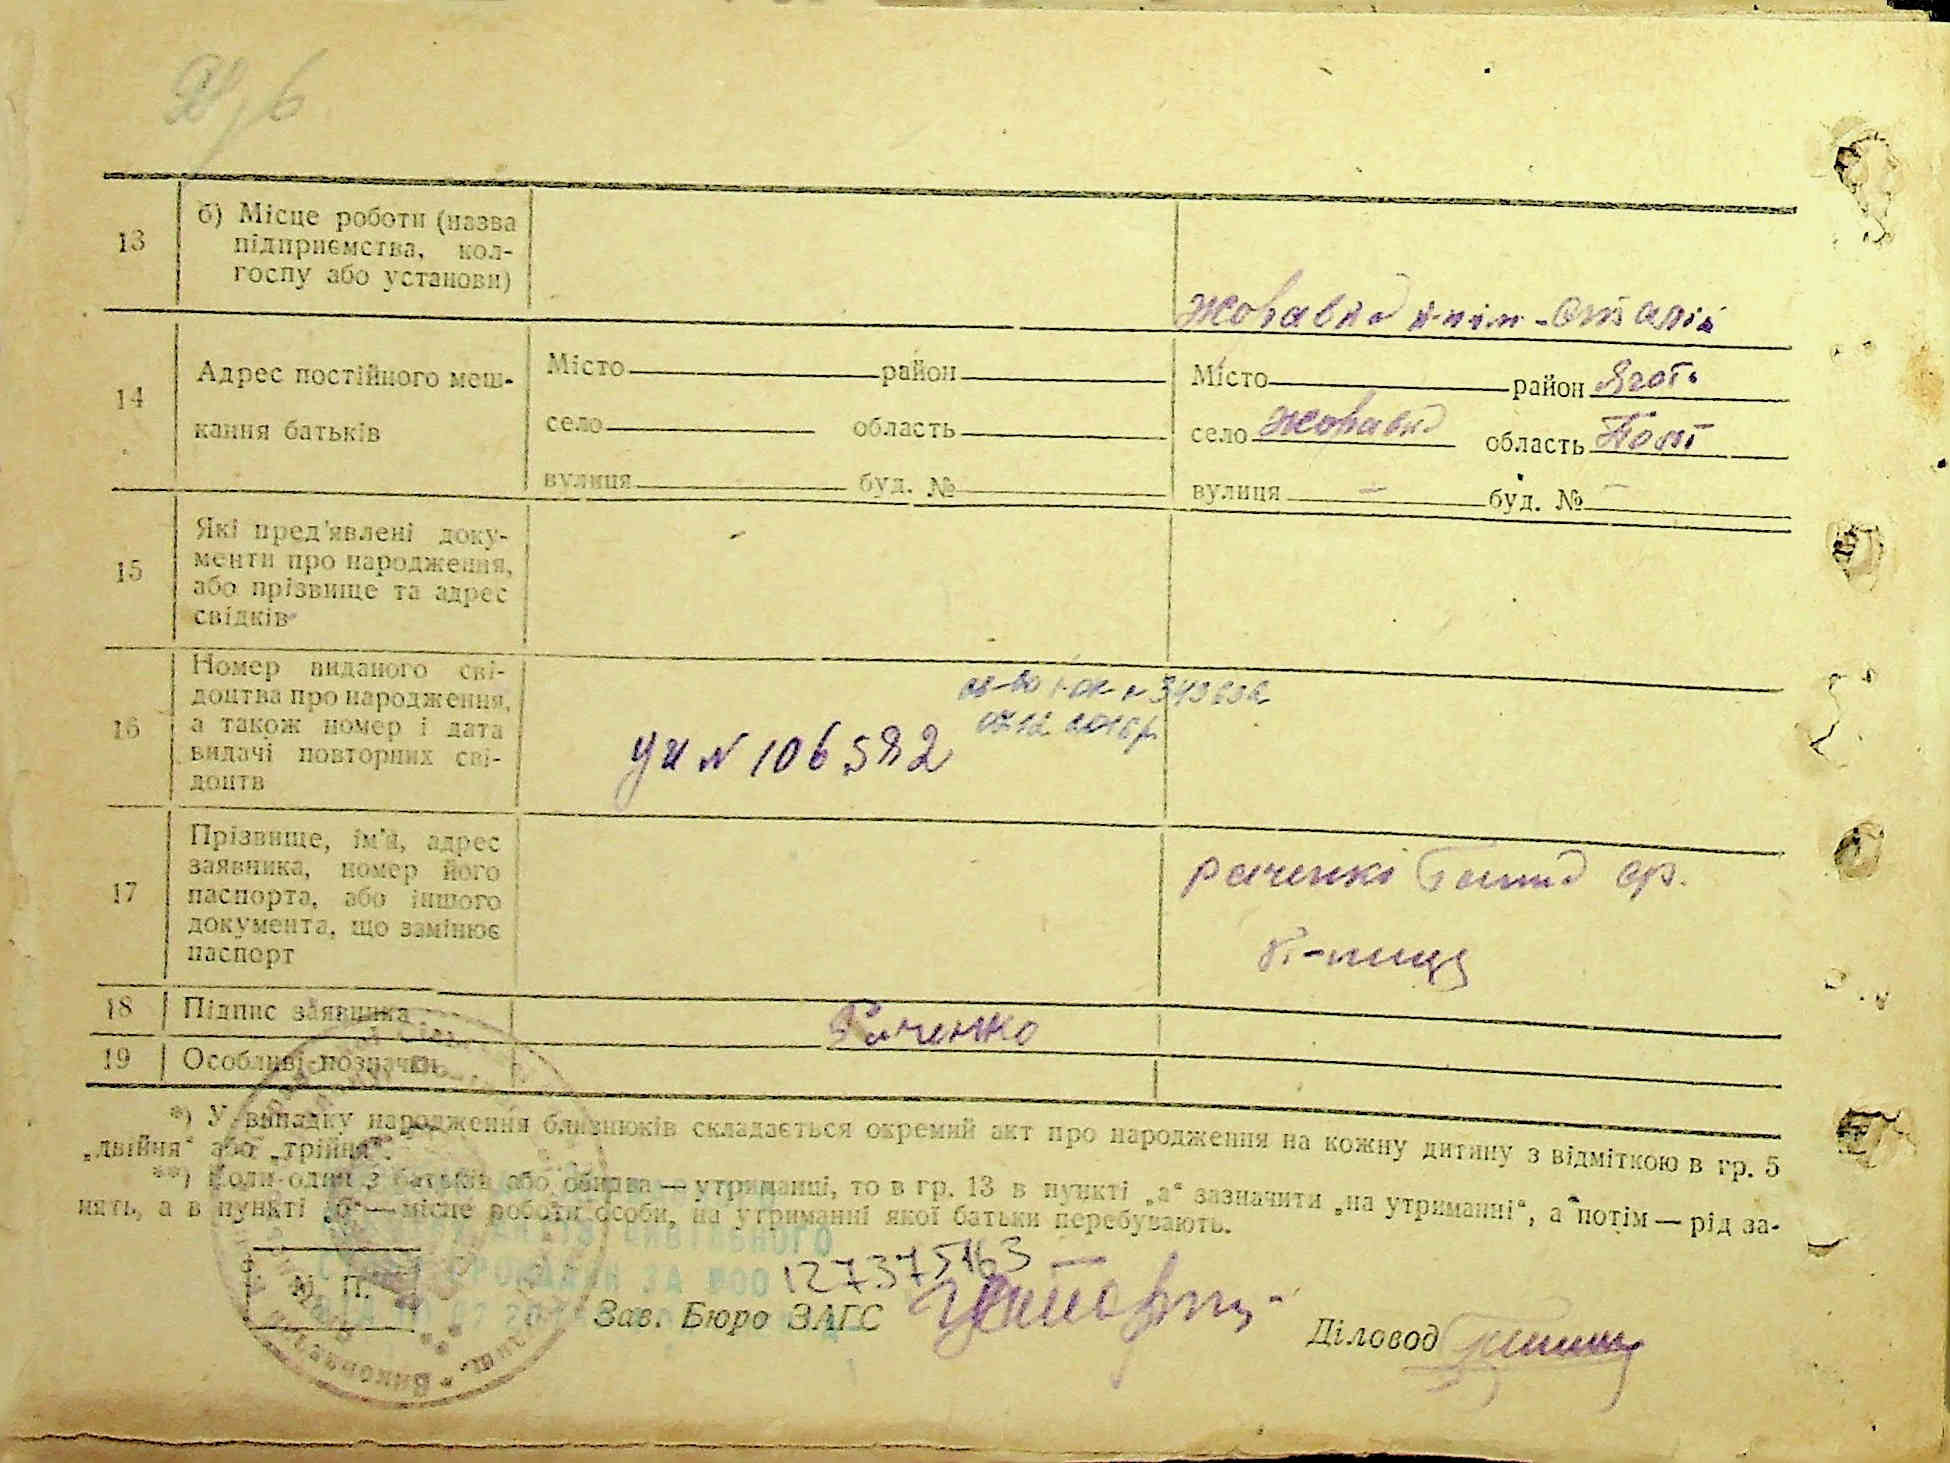 13 б) Місце роботи (назва
підприємства, кол-
госпу або установи)
14 Адрес постійного меш-
кання батьків
Місто район
село область
вулиця буд. №
Місто район Ягот.
село Жоравка область Полт
вулиця — буд. № —
15 Які пред'явлені доку-
менти про народження,
або прізвище та адрес
свідків
16 Номер виданого сві-
доцтва про народження,
а також номер і дата
видачі повторних сві-
доцтв
07.12 2016р.
№ 106582
17 Прізвище, ім'я, адрес
заявника, номер його
паспорта, або іншого
документа, що замінює
паспорт
18 Підпис заявника
19 Особливі позначки
*) У випадку народження близнюків складається окремий акт про народження на кожну дитину з відміткою в гр. 5
„двійня“ або „трійня“.
**) Коли один з батьків або обидва — утриманці, то в гр. 13 в пункті „а“ зазначити „на утриманні“, а потім — рід за-
нять, а в пункті „б“ — місце роботи особи, на утриманні якої батьки перебувають.
М. П.
ГРОМАДЯН ЗА №00
127375163
Зав. Бюро ЗАГС
Діловод